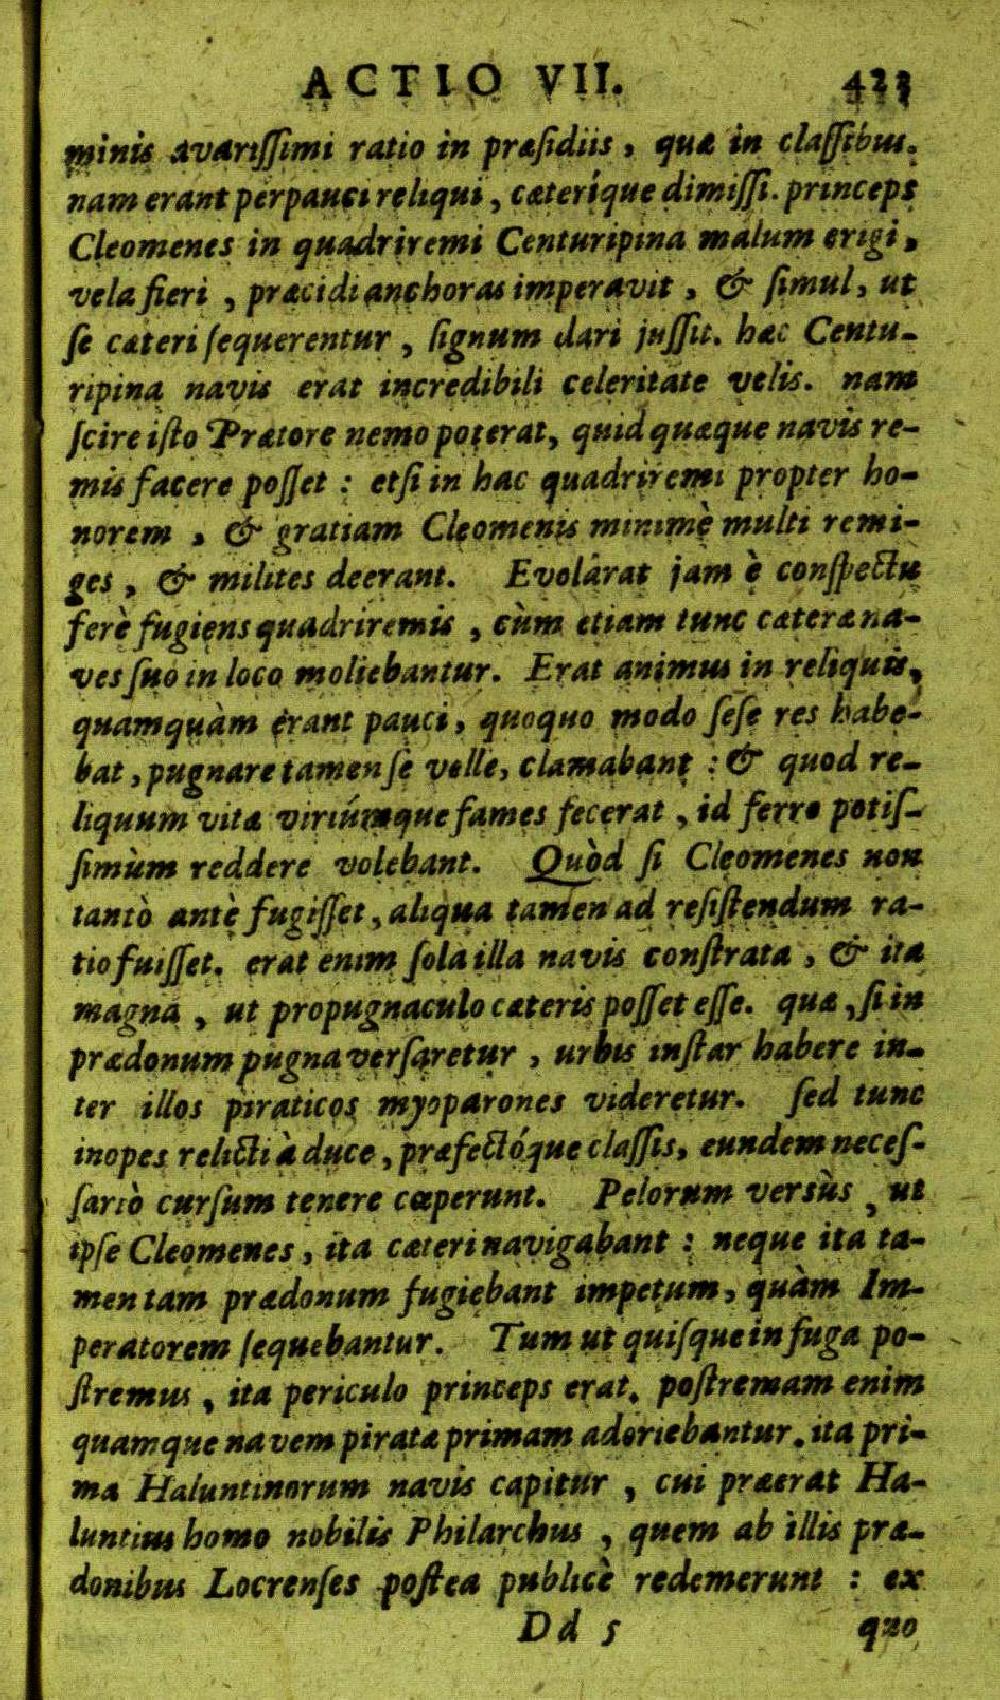 ACTIO VII. 423
minis avarissimi ratio in præsidiis, quæ in classibus.
nam erant perpauci reliqui, cæteríque dimissi. princeps
Cleomenes in quadriremi Centuripina malum erigi,
vela fieri, præcidi anchoras imperavit, & simul, ut
se cæteri sequerentur, signum dari jussit. hæc Centu-
ripina navis erat incredibili celeritate velis. nam
scire isto Prætore nemo poterat, quid quæque navis re-
mis facere posset: etsi in hac quadriremi propter ho-
norem, & gratiam Cleomenis minimè multi remi-
ges, & milites deerant. Evolârat jam è conspectu
ferè fugiens quadriremis, cùm etiam tunc cæteræ na-
ves suo in loco moliebantur. Erat animus in reliquis,
quamquàm erant pauci, quoquo modo sese res habe-
bat, pugnare tamen se velle, clamabant: & quod re-
liquum vitæ viriúmque fames fecerat, id ferro potis-
simùm reddere volebant. Quòd si Cleomenes non
tantò antè fugisset, aliqua tamen ad resistendum ra-
tio fuisset. erat enim sola illa navis constrata, & ita
magna, ut propugnaculo cæteris posset esse. quæ, si in
prædonum pugna versaretur, urbis instar habere in-
ter illos piraticos myoparones videretur. sed tunc
inopes relicti à duce, præfectóque classis, eundem neces-
sariò cursum tenere cœperunt. Pelorum versùs, ut
ipse Cleomenes, ita cæteri navigabant: neque ita ta-
men tam prædonum fugiebant impetum, quàm Im-
peratorem sequebantur. Tum ut quisque in fuga po-
stremus, ita periculo princeps erat. postremam enim
quamque navem piratæ primam adoriebantur. ita pri-
ma Haluntinorum navis capitur, cui præerat Ha-
luntius homo nobilis Philarchus, quem ab illis præ-
donibus Locrenses postea publicè redemerunt: ex
Dd 5 quo